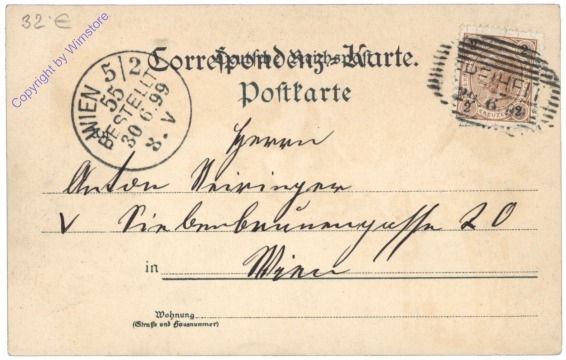 32.€
Copyright by Wimstore
Correspondenz-Karte.
Postkarte
WIEN 5/2
55
BESTELLT
30.6.99
8.V
2
KREUZER
Herrn
Anton Neiringer
V Siebenbrunengasse 20
in Wien
Wohnung
(Straße und Hausnummer)